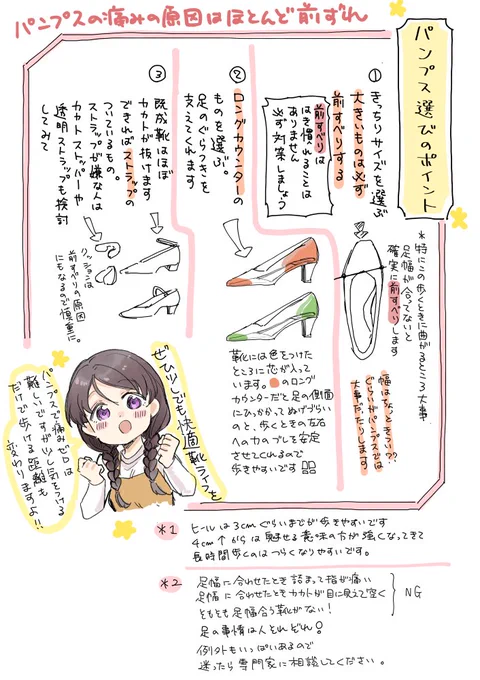 パンプスの痛みの原因はほとんど前ずれ
パンプス選びのポイント
①
きっちりサイズを選ぶ
大きいものは必ず
前すべりする
前すべりは
はき慣れることは
ありません
必ず対策しましょう
*特にこの歩くときに曲がるところ大事
足幅が合ってないと
確実に前すべりします
幅はちょっときつい??
ぐらいがパンプスでは
大事だったりします
②
ロングカウンターの
ものを選ぶ。
足のぐらつきを
支えてくれます
靴には色をつけた
ところに芯が入って
います。●のロング
カウンターだと足の側面
にひっかかってぬげづらい
のと、歩くときの左右
への力のブレを安定
させてくれるので
歩きやすいです
③
既成靴はほぼ
カカトが抜けます
できればストラップの
ついているもの。
ストラップが嫌な人は
カカトストッパーや
透明ストラップも検討
してみて
クッションは
前すべりの原因
にもなるので慎重に。
ぜひ少しでも快適靴ライフを
パンプスで痛みゼロは
難しいですが少し気をつける
だけで歩ける距離も
変わりますよ!!
*1
ヒールは3cmぐらいまでが歩きやすいです
4cm↑からは魅せる意味の方が強くなってきて
長時間歩くのはつらくなりやすいです。
*2
足幅に合わせたとき詰まって指が痛い
足幅に合わせたときカカトが目に見えて空く
NG
そもそも足幅合う靴がない!
足の事情は人それぞれ!
例外もいっぱいあるので
迷ったら専門家に相談してください。